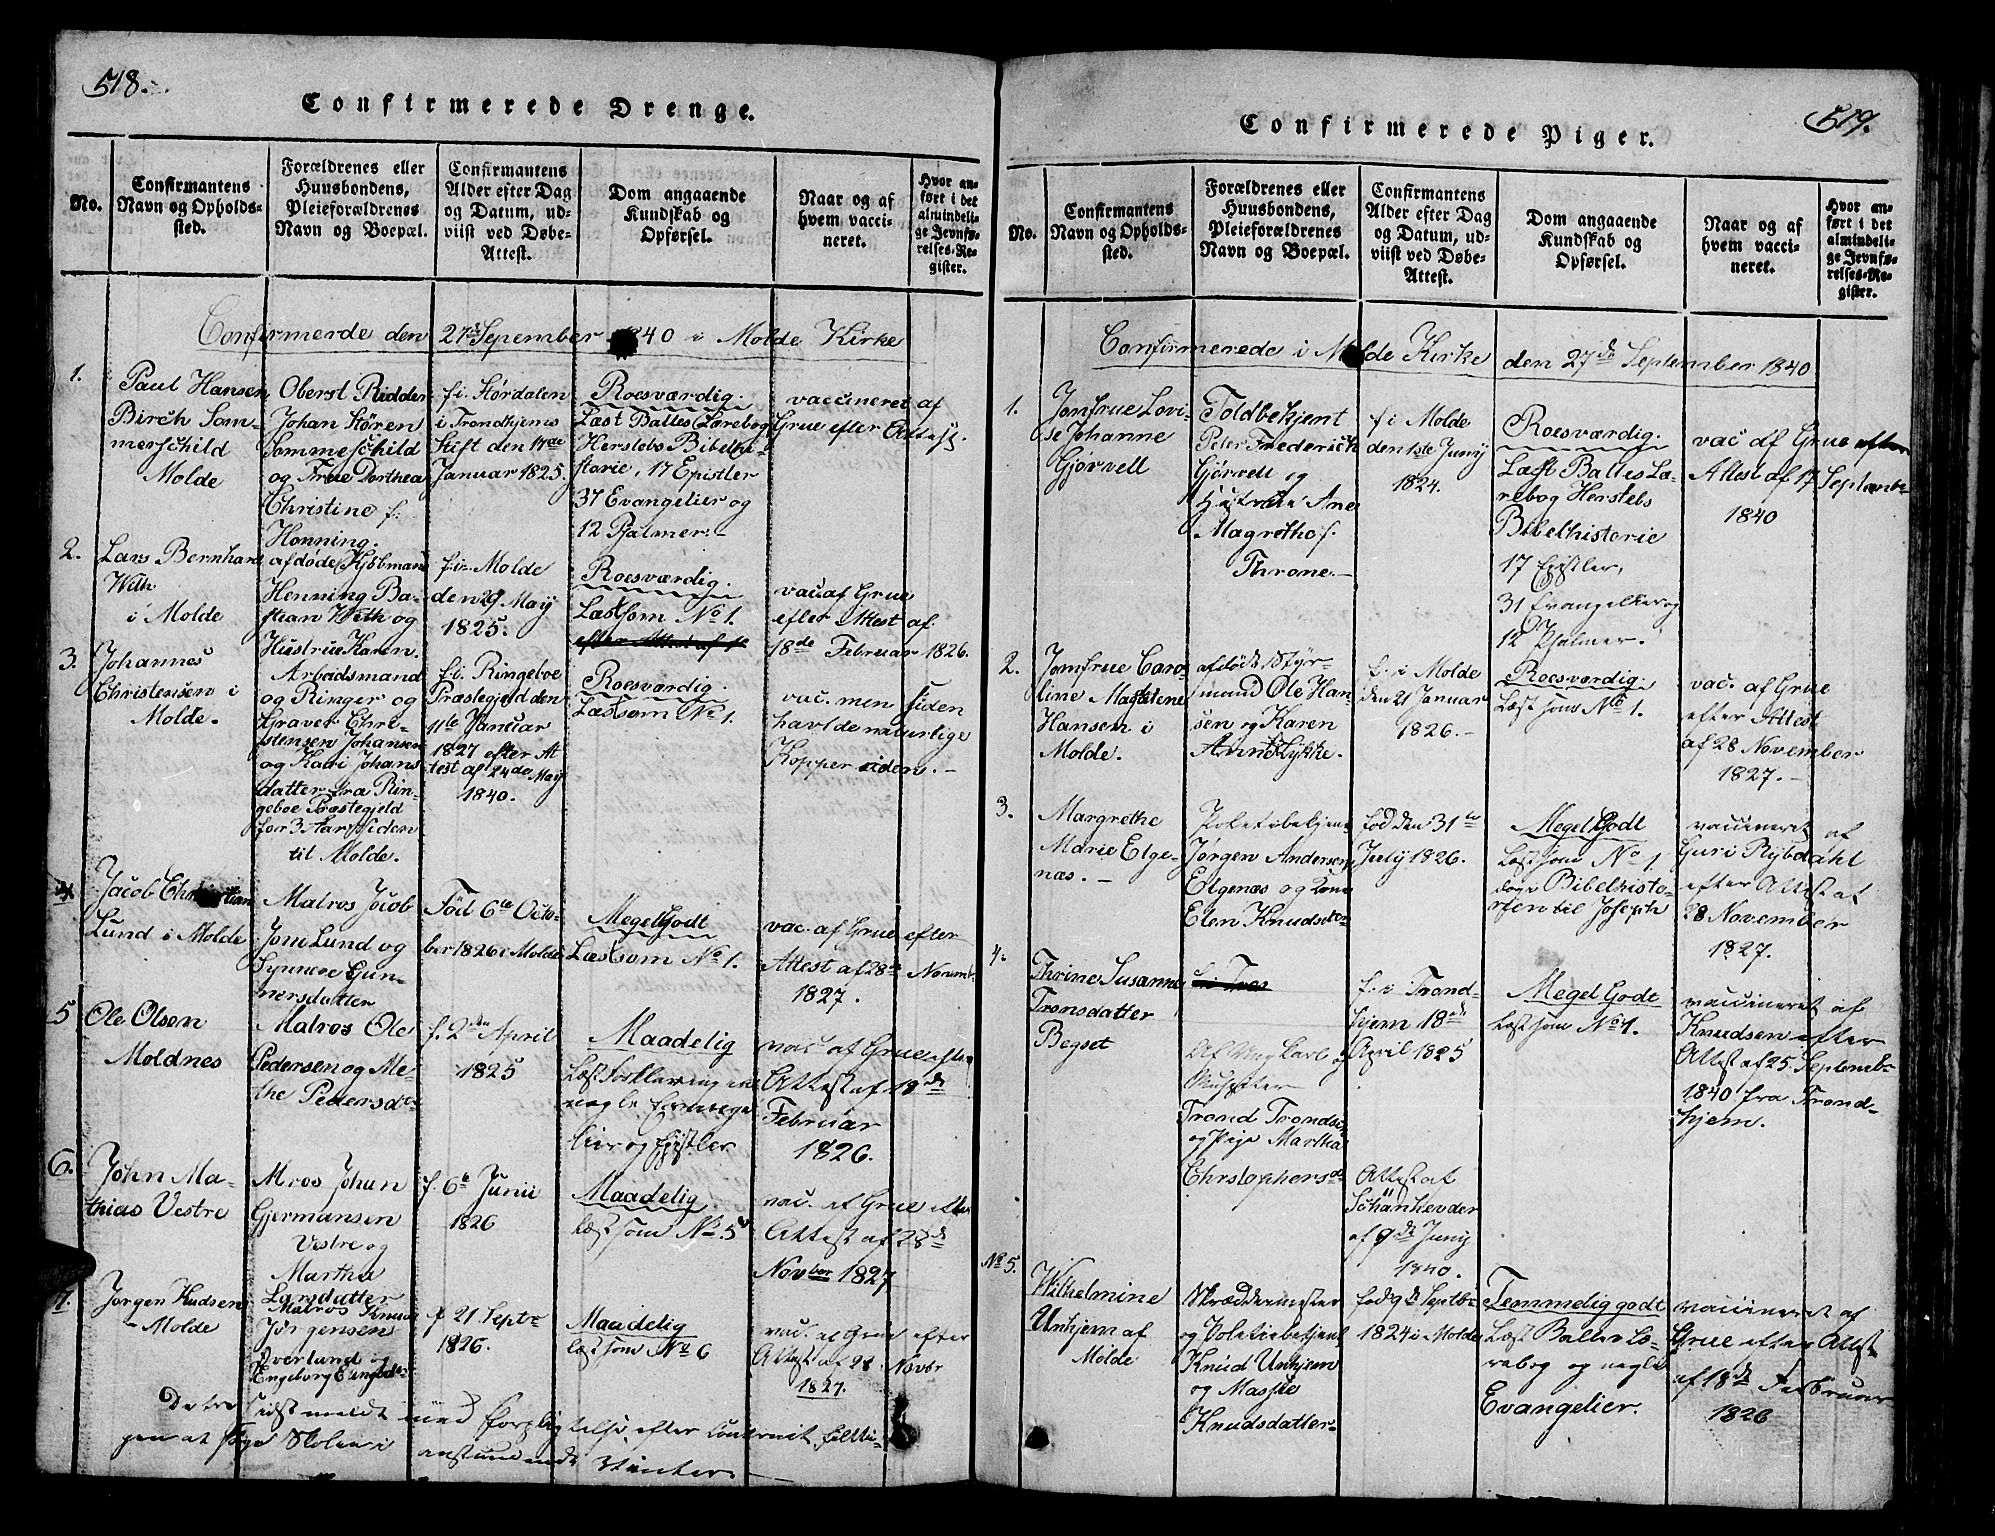 518.
Confirmerede Drenge.
No.
Confirmantens
Navn og Opholds-
sted.
Forældrenes eller
Huusbondens,
Pleieforældrenes
Navn og Boepæl.
Confirmantens
Alder efter Dag
og Datum, ud-
viist ved Døbe-
Attest.
Dom angaaende
Kundskab og
Opførsel.
Naar og af
hvem vacci-
neret.
Hvor an-
ført i det
almindeli-
ge Jevnfø-
relses-Re-
gister.
Confirmerde den 27de Sepember 1840 i Molde Kirke
1.
Paul Hansen
Birch Som-
merschild
Molde
Oberst Ridder
Johan Stören
Sommeschild
og Frue Dorthea
Christine f:
Honning.
f. i. Størdalen
i Trondhjems
Stift den 17de
Januar 1825.
Roesværdig.
Læst Balles Lærebog
Herslebs Bibelhi-
storie, 17 Epistler
37 Evangelier og
12 Psalmer.-
vaccineret af
Grue efter Attest.
2.
Lars Bernhard
With
i Molde
afdøde Kjøbmand
Henning Ba-
stian With og
Hustrue Karen.
f. i. Molde
den 29 May
1825.
Roesværdig.
Læst som No 1.
vac af Grue
efter Attest af
18de Februar 1826.
3.
Johannes
Christensen i
Molde.
Arbeidsmand
og Ringer og
Graver Chri-
stensen Johansen
og Kari Johans
datter fra Rin-
geboe Præstegjeld
for 3 Aar siden
til Molde.
f. i. Ringeboe
Præstegjeld den
11te Januar
1827 efter At
test af 24de May
1840.
Roesværdig.
Læst som No 1.
vac. men siden
havt de naturlige
Kopper siden.-
4
Jacob Christian
Lund i Molde
Matros Jacob
Jon Lund og
Synneve Gun-
nersdatter
Fød 6te Octo-
ber 1826 i Molde
Meget Godt
Læst som No 1.
vac. af Grue efter
Attest af 28de Novemb.
1827.
5
Ole Olsen
Moldnes
Matros Ole
Pedersen og Me-
the Pedersdtr
f. 2den April
1825
Maadelig
Læst Forklaring en
nogle Evange
lier og Epistler
vac af Grue efter
Attest af 18de
Februar
1826.
6.
John Ma-
thias Vestre
Mros Johan
Gjermansen
Vestre og
Martha
Larsdatter
f. 6te Junii
1826
Maadelig
læst som No 5
vac. af Grue efter
Attest af 28de
Novber 1827
7.
Jørgen Kudsen
Molde
Matros Knud
Jörgensen
Överland og
Engeborg
f 21 Septbr
1826.
Maadelig
læst som No 6
vac. af Grue efter
Attest af 28 Novbr
1827.
De tre sidst meldt med forpligtelse efter
gen at søge Skolen i anstundende Vinter.
519.
Confirmerede Piger.
No.
Confirmantens
Navn og Opholds-
sted.
Forældrenes eller
Huusbondens,
Pleieforældrenes
Navn og Boepæl.
Confirmantens
Alder efter Dag
og Datum, ud-
viist ved Døbe-
Attest.
Dom angaaende
Kundskab og
Opførsel.
Naar og af
hvem vacci-
neret.
Hvor an-
ført i det
almindeli-
ge Jevnfø-
relses-Re-
gister.
Confirmerede i Molde Kirke den 27de September 1840
1.
Jomfrue Lovi-
se Johanne
Gjørvell
Toldbetjent
Peter Frederich
Gjörvell og
Hustrue Ane
Magretha f.
Throne.-
f i Molde
den 1ste Juny
1824.
Roesværdig.
Læst Balles Læ-
rebog Herslebs
Bibelhistorie
17 Epistler,
31 Evangelier og
12 Psalmer.
vac af Grue efter
Attest af 17 Septembr
1840
2.
Jomfrue Caro-
line Magdalene
Hansen i
Molde.
afdøde Styr-
mand Ole Han-
sen og Karen
Anne Lykke.
f. i Molde
den 21 Januar
1826.-
Roesværdig.
Læst som No 1.
vac. af Grue
efter Attest
af 28 November
1827.-
3.
Margrethe
Marie Elge-
næs.-
Politibetjen
Jørgen Andersen
Elgenæs og Kone
Elen Knudsdtr
fød den 31te
July 1826.
Meget Godt
Læst som No 1
dog Bibelhisto-
rien til Joseph
vaccineret af
Guri Rybdahl
efter Attest af
28 November
1827.
4.
Thrine Susanne
Tronsdatter
Begset
Af Ung Karl og
Musqeter
Trond Trondsen
og Pige Martha
Chrstophersdr
f. i Trond-
hjem 18de
April 1825
Attest af
af 9de Juny
1840.
Meget Godt
Læst som No 1.
vaccineret af
Knudsen efter
Attest af 25 Septembr
1840 fra Trond-
hjem.
No 5.
Wilhelmine
Unhjem af
Molde
Skræddermester
og Politiebetjent
Knud Unhjem
og Masjie
Knudsdatter-
fød 9de Septbr
1824 i Molde
Temmelig godt
Læst Balles Læ-
rebog og nogle
Evangelier.
vaccineret af
Grue efter Attst
af 18de Februar
1826